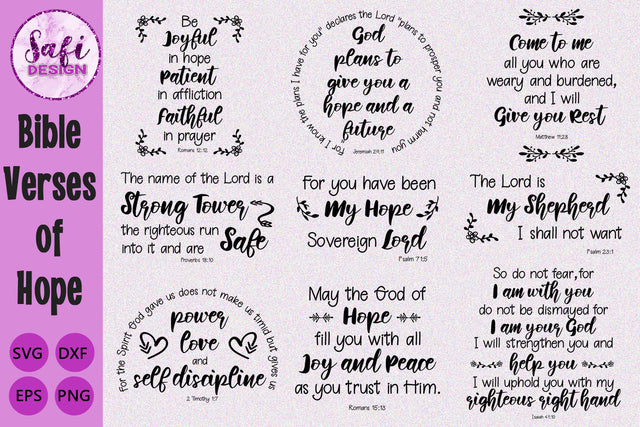 Safi
DESIGN
Bible
Verses
of
Hope
SVG
DXF
EPS
PNG
Be
Joyful
in hope
Patient
in affliction
Faithful
in prayer
Romans 12:12
For I know the plans I have for you" declares the Lord "plans to prosper you and not harm you
God
plans to
give you a
hope and a
future
Jeremiah 29:11
Come to me
all you who are
weary and burdened,
and I will
Give you Rest
Matthew 11:28
The name of the Lord is a
Strong Tower
the righteous run
into it and are Safe
Proverbs 18:10
For you have been
My Hope
Sovereign Lord
Psalm 71:5
The Lord is
My Shepherd
I shall not want
Psalm 23:1
For the Spirit God gave us does not make us timid but gives us
power
love
and
self discipline
2 Timothy 1:7
May the God of
Hope
fill you with all
Joy and Peace
as you trust in Him.
Romans 15:13
So do not fear, for
I am with you
do not be dismayed for
I am your God
I will strengthen you and
help you
I will uphold you with my
righteous right hand
Isaiah 41:10